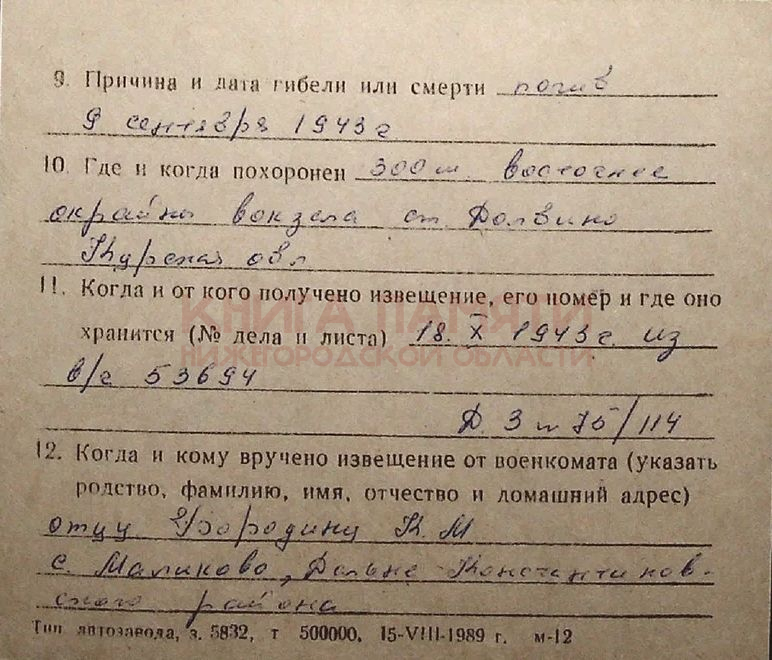 9. Причина и дата гибели или смерти погиб
9 сентября 1943 г
10. Где и когда похоронен 300 м. восточнее
окрайны вокзала ст. Долбино
Курская обл
11. Когда и от кого получено извещение, его номер и где оно
КНИГА ПАМЯТИ
хранится (№ дела и листа) 18. X 1943 г. из
НИЖНОРОДСКОЙ ОБЛАСТИ
в/ч 53694
Д. 3 л 75/114
12. Когда и кому вручено извещение от военкомата (указать
родство, фамилию, имя, отчество и домашний адрес)
отцу К. М
с. Маликово, Дальне Константинов-
ского района
Тип автозавода, з. 5832, т 500000, 15-VIII-1989 г. м-12